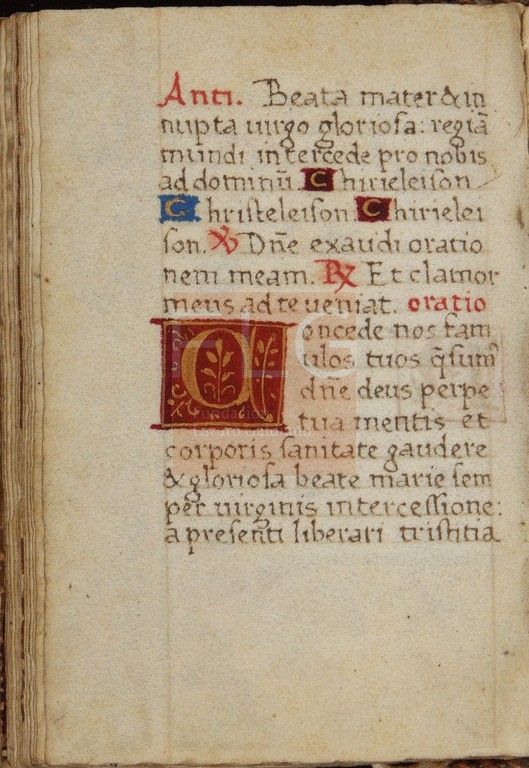 Anti. Beata mater & in
nupta uirgo gloriosa: regiā
mundi intercede pro nobis
ad dominū. Chirieleison
Christeleison. Chirielei
son. ℣ Dn̄e exaudi oratio
nem meam. ℟ Et clamor
meus ad te ueniat. oratio
Concede nos fam
ulos tuos q̄sum⁹
dn̄e deus perpe
tua mentis et
corporis sanitate gaudere
& gloriosa beate marie sem
per uirginis intercessione:
a presenti liberari tristitia